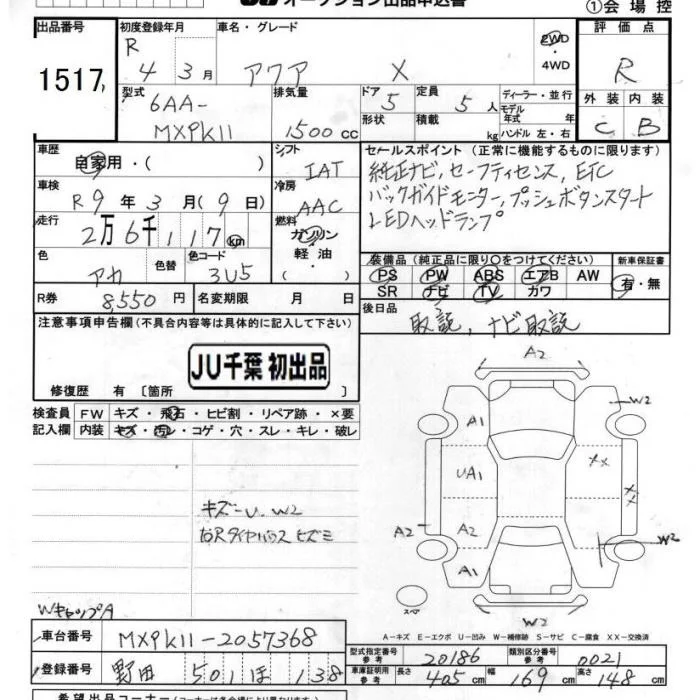 オークション出品申込書
①会場控
出品番号
1517
初度登録年月
R 4年 3月
車名・グレード
アクア X
2WD・4WD
評価点
R
外装 内装
C B
型式
6AA-
MXPK11
排気量
1500cc
ドア 5
形状
定員 5人
積載 kg
ディーラー・並行
モデル年式 年式
ハンドル 左・右
車歴
自家用・( )
シフト
IAT
車検
R 9年 3月(9日)
冷房
AAC
走行
2万6千117km
燃料
ガソリン
軽油・
( )
色
アカ
色替
色コード
3U5
R券 8,550円
名変期限 月 日
セールスポイント(正常に機能するものに限ります)
純正ナビ,セーフティセンス,ETC
バックガイドモニター,プッシュボタンスタート
LEDヘッドランプ
装備品(純正品に限り○をつけてください)
新車保証書
PS PW ABS エアB AW
有・無
SR ナビ TV カワ
後日品
取説,ナビ取説
注意事項申告欄(不具合内容等は具体的に記入して下さい)
JU千葉 初出品
修復歴 有〔箇所 〕
検査員記入欄
FW キズ・飛石・ヒビ割・リペア跡・×要
内装 キズ・汚レ・コゲ・穴・スレ・キレ・破レ
キズ-U.W2
右Rタイヤハウス ヒズミ
WキャップA
A2
W2
A1
UA1
XX
XX
A2
A2
W2
A1
スペア
W2
A-キズ E-エクボ U-凹み W-補修跡 S-サビ C-腐食 XX-交換済
車台番号 MXPK11-2057368
登録番号 野田 501 ほ 138
型式指定番号 参考 20186
類別区分番号 参考 0021
車庫証明用 参考 長さ 405cm 幅 169cm 高さ 148cm
希望出品コーナー